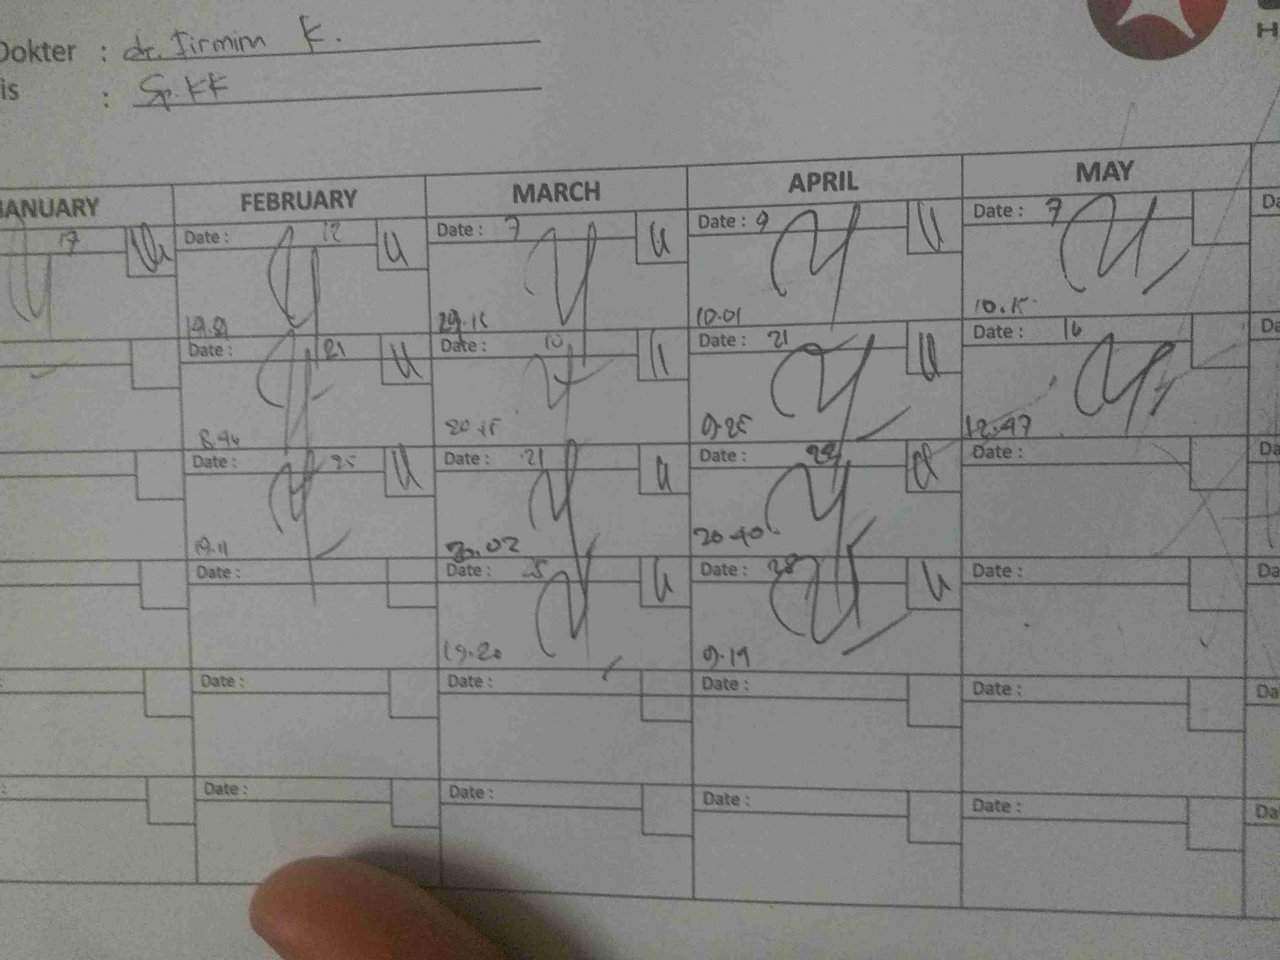 Dokter : dr. Firmim K.
is : Sp.KK
H
JANUARY FEBRUARY MARCH APRIL MAY
17 Date : 12 Date : 7 Date : 9 Date : 7 Da
u u u
29.15 10.01 10.15
Date : 21 Date : 10 Date : 21 Date : 16 Da
u u u
20.15 9.25 12.47
Date : 25 Date : 21 Date : Date : Da
u u
19.11 20.02 20.40
Date : Date : 25 Date : 28 Date : Da
u u
19.20 9.19
: Date : Date : Date : Date : Da
: Date : Date : Date : Date : Da